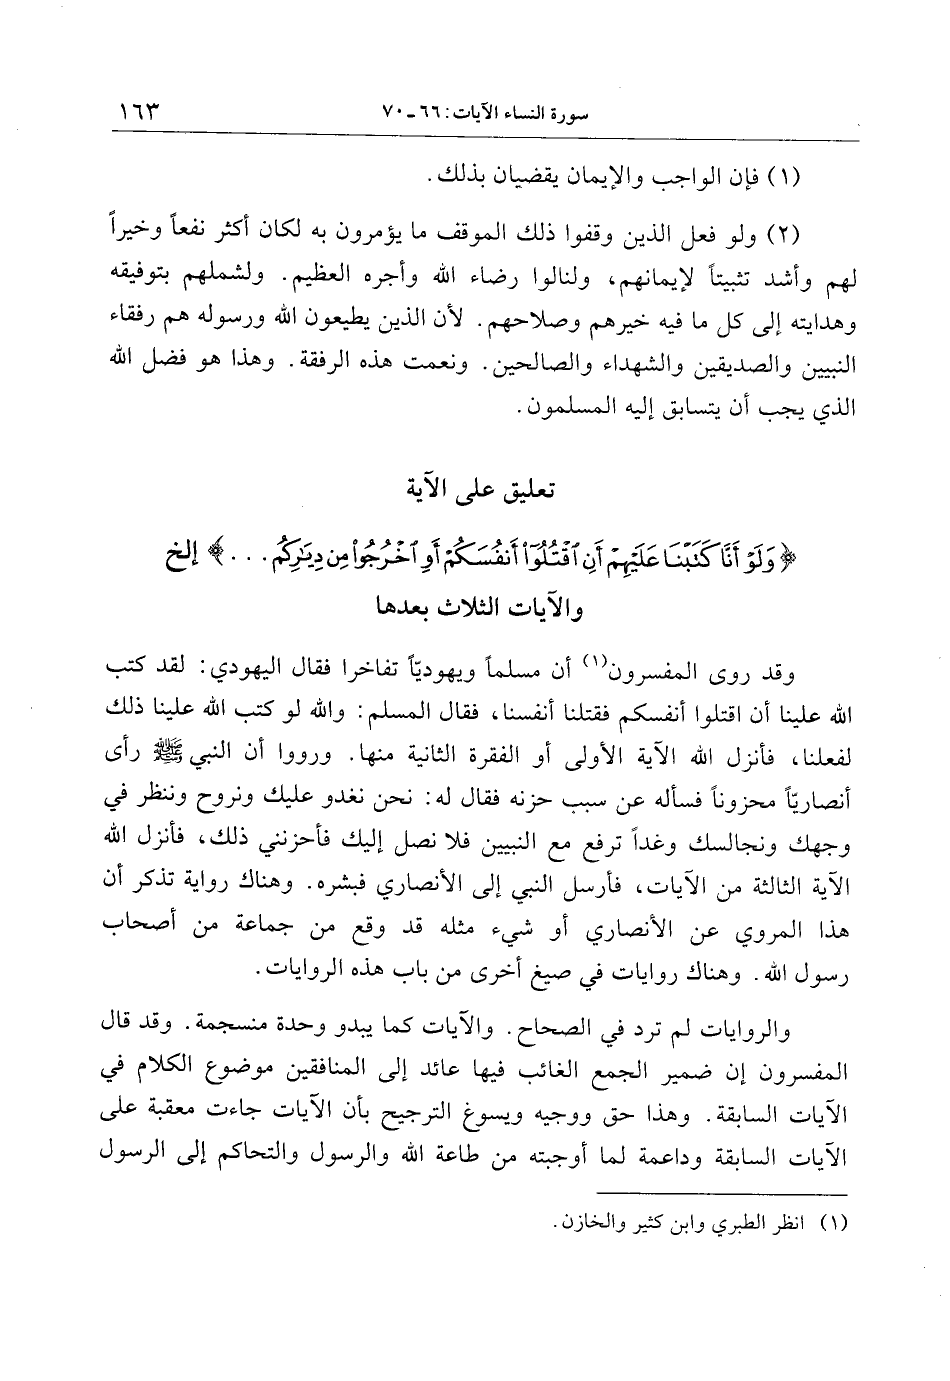 سورة النساء الآيات: ٦٦ـ٧٠ ١٦٣
(١) فإن الواجب والإيمان يقضيان بذلك.
(٢) ولو فعل الذين وقفوا ذلك الموقف ما يؤمرون به لكان أكثر نفعاً وخيراً
لهم وأشد تثبيتاً لإيمانهم، ولنالوا رضاء الله وأجره العظيم. ولشملهم بتوفيقه
وهدايته إلى كل ما فيه خيرهم وصلاحهم. لأن الذين يطيعون الله ورسوله هم رفقاء
النبيين والصديقين والشهداء والصالحين. ونعمت هذه الرفقة. وهذا هو فضل الله
الذي يجب أن يتسابق إليه المسلمون.
تعليق على الآية
﴿وَلَوۡ أَنَّا كَتَبۡنَا عَلَيۡهِمۡ أَنِ ٱقۡتُلُوٓاْ أَنفُسَكُمۡ أَوِ ٱخۡرُجُواْ مِن دِيَٰرِكُم ...﴾ إلخ
والآيات الثلاث بعدها
وقد روى المفسرون(١) أن مسلماً ويهوديّاً تفاخرا فقال اليهودي: لقد كتب
الله علينا أن اقتلوا أنفسكم فقتلنا أنفسنا، فقال المسلم: والله لو كتب الله علينا ذلك
لفعلنا، فأنزل الله الآية الأولى أو الفقرة الثانية منها. ورووا أن النبي ﷺ رأى
أنصاريّاً محزوناً فسأله عن سبب حزنه فقال له: نحن نغدو عليك ونروح وننظر في
وجهك ونجالسك وغداً ترفع مع النبيين فلا نصل إليك فأحزنني ذلك، فأنزل الله
الآية الثالثة من الآيات، فأرسل النبي إلى الأنصاري فبشره. وهناك رواية تذكر أن
هذا المروي عن الأنصاري أو شيء مثله قد وقع من جماعة من أصحاب
رسول الله. وهناك روايات في صيغ أخرى من باب هذه الروايات.
والروايات لم ترد في الصحاح. والآيات كما يبدو وحدة منسجمة. وقد قال
المفسرون إن ضمير الجمع الغائب فيها عائد إلى المنافقين موضوع الكلام في
الآيات السابقة. وهذا حق ووجيه ويسوغ الترجيح بأن الآيات جاءت معقبة على
الآيات السابقة وداعمة لما أوجبته من طاعة الله والرسول والتحاكم إلى الرسول
(١) انظر الطبري وابن كثير والخازن.